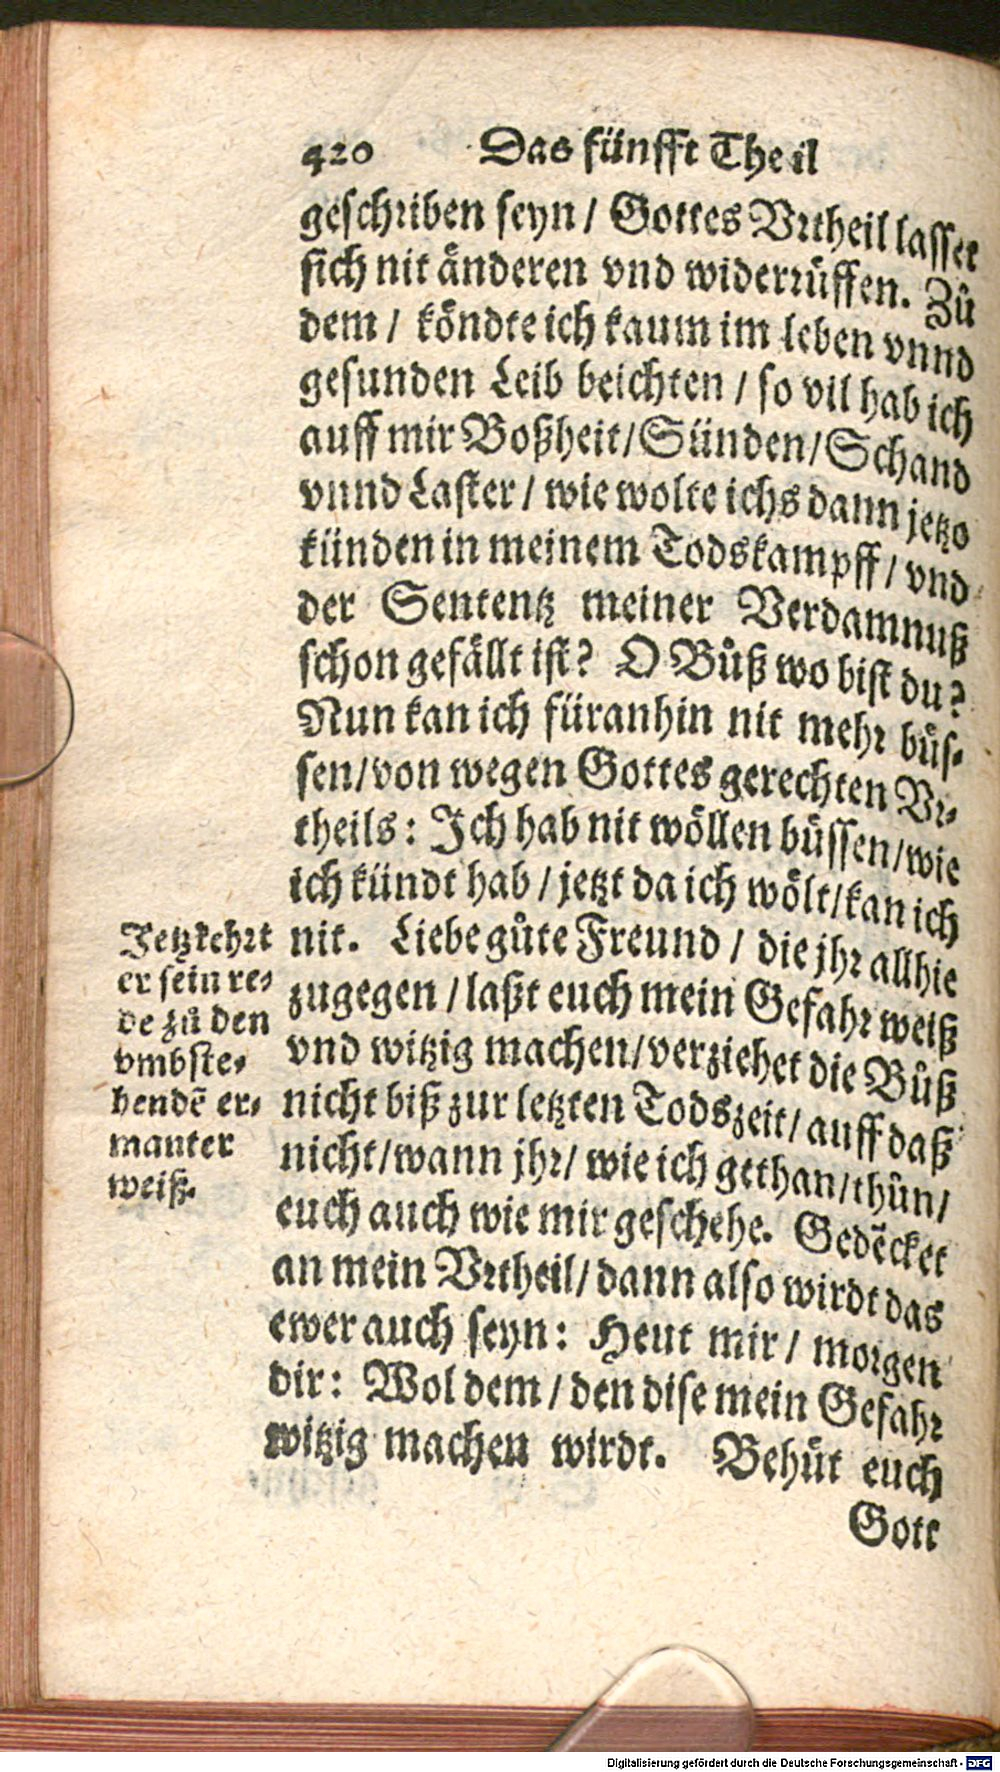 420 Das fünfft Theil
geschriben seyn / Gottes Vrtheil lasset
sich nit änderen vnd widerrůffen. Zů
dem / köndte ich kaum im leben vnnd
gesunden Leib beichten / so vil hab ich
auff mir Boßheit / Sünden / Schand
vnnd Laster / wie wolte ichs dann jetzo
künden in meinem Todskampff / vnd
der Sententz meiner Verdamnuß
schon gefällt ist? O Bůß wo bist du?
Nun kan ich füranhin nit mehr bůs-
sen / von wegen Gottes gerechten Vr-
theils: Ich hab nit wöllen bůssen / wie
ich kündt hab / jetzt da ich wölt / kan ich
nit. Liebe gůte Freund / die jhr allhie
zugegen / laßt euch mein Gefahr weiß
vnd witzig machen / verziehet die Bůß
nicht biß zur letzten Todszeit / auff daß
nicht / wann jhr / wie ich gethan / thůn /
euch auch wie mir geschehe. Gedẽcket
an mein Vrtheil / dann also wirdt das
ewer auch seyn: Heut mir / morgen
dir: Wol dem / den dise mein Gefahr
witzig machen wirdt. Behůt euch
Gott
Jetz kehrt
er sein re-
de zů den
vmbste-
hendẽ er-
manter
weiß.
Digitalisierung gefördert durch die Deutsche Forschungsgemeinschaft - DFG